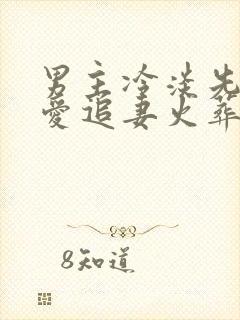 男主冷淡先
愛追妻火葬
8知道